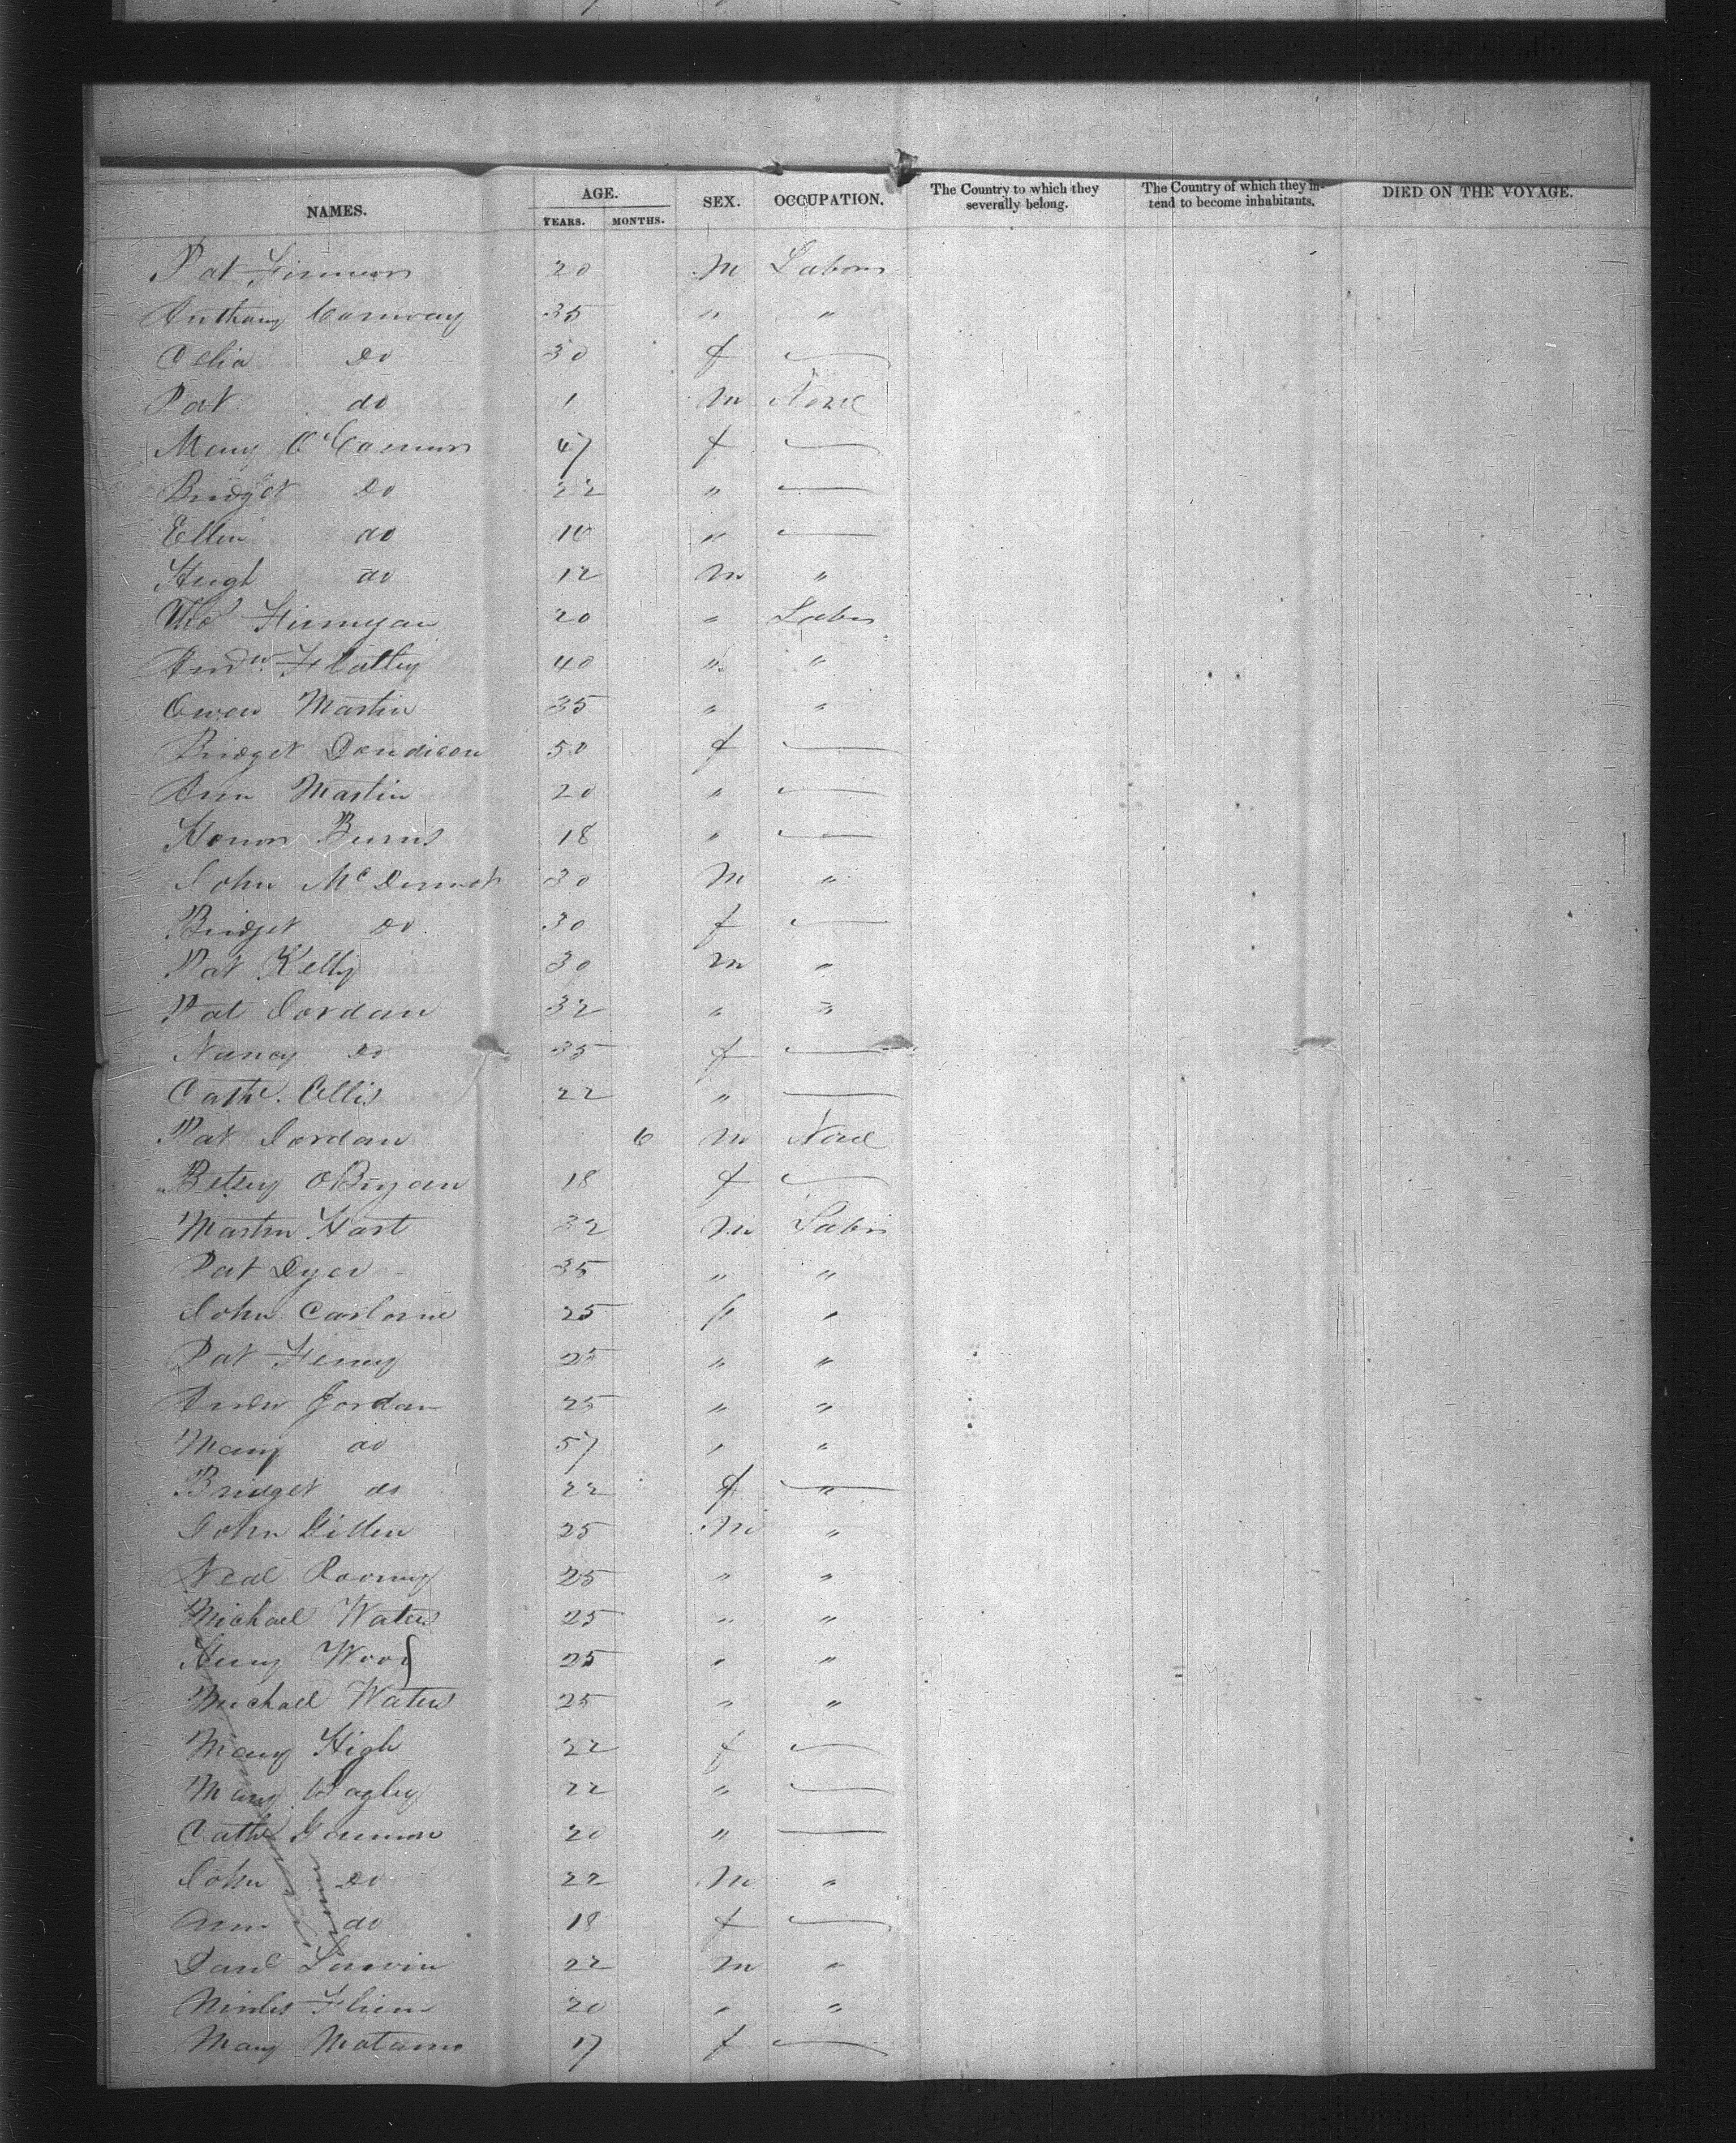 NAMES. AGE. YEARS. MONTHS. SEX. OCCUPATION. The Country to which they severally belong. The Country of which they intend to become inhabitants. DIED ON THE VOYAGE.
Pat 20 M Labour
Anthony Conway 35 " "
Celia Do 30 f
Pat do 1 M None
Mary O'Connor 47 f
Bridget Do 22 "
Ellen do 10 "
Hugh do 12 M "
Tho^s Finnegan 20 " Labr
And^w Flatley 40 " "
Owen Martin 35 " "
Bridget 50 f
Ann Martin 20 "
Honor Burns 18 "
John McDermot 30 M "
Bridget Do 30 f
Pat Kelly 30 M "
Pat Jordan 32 " "
Nancy Do 35 f
Cath^e. 22 "
Pat Jordan 6 M None
Betsey OBryan 18 f
Martin Hart 32 M Labr
Pat Dyer 35 " "
John 25 " "
Pat Feeny 25 " "
Andw Jordan 25 " "
Mary do 57 " "
Bridget do 22 f "
John 25 M "
Neal Rooney 25 " "
Michael Waters 25 " "
Wood 25 " "
Michael Waters 25 " "
Mary High 22 f
Mary 22 "
Cath^e Gannon 20 "
John Do 22 M "
Ann do 18 f
22 M "
20 " "
Mary 17 f